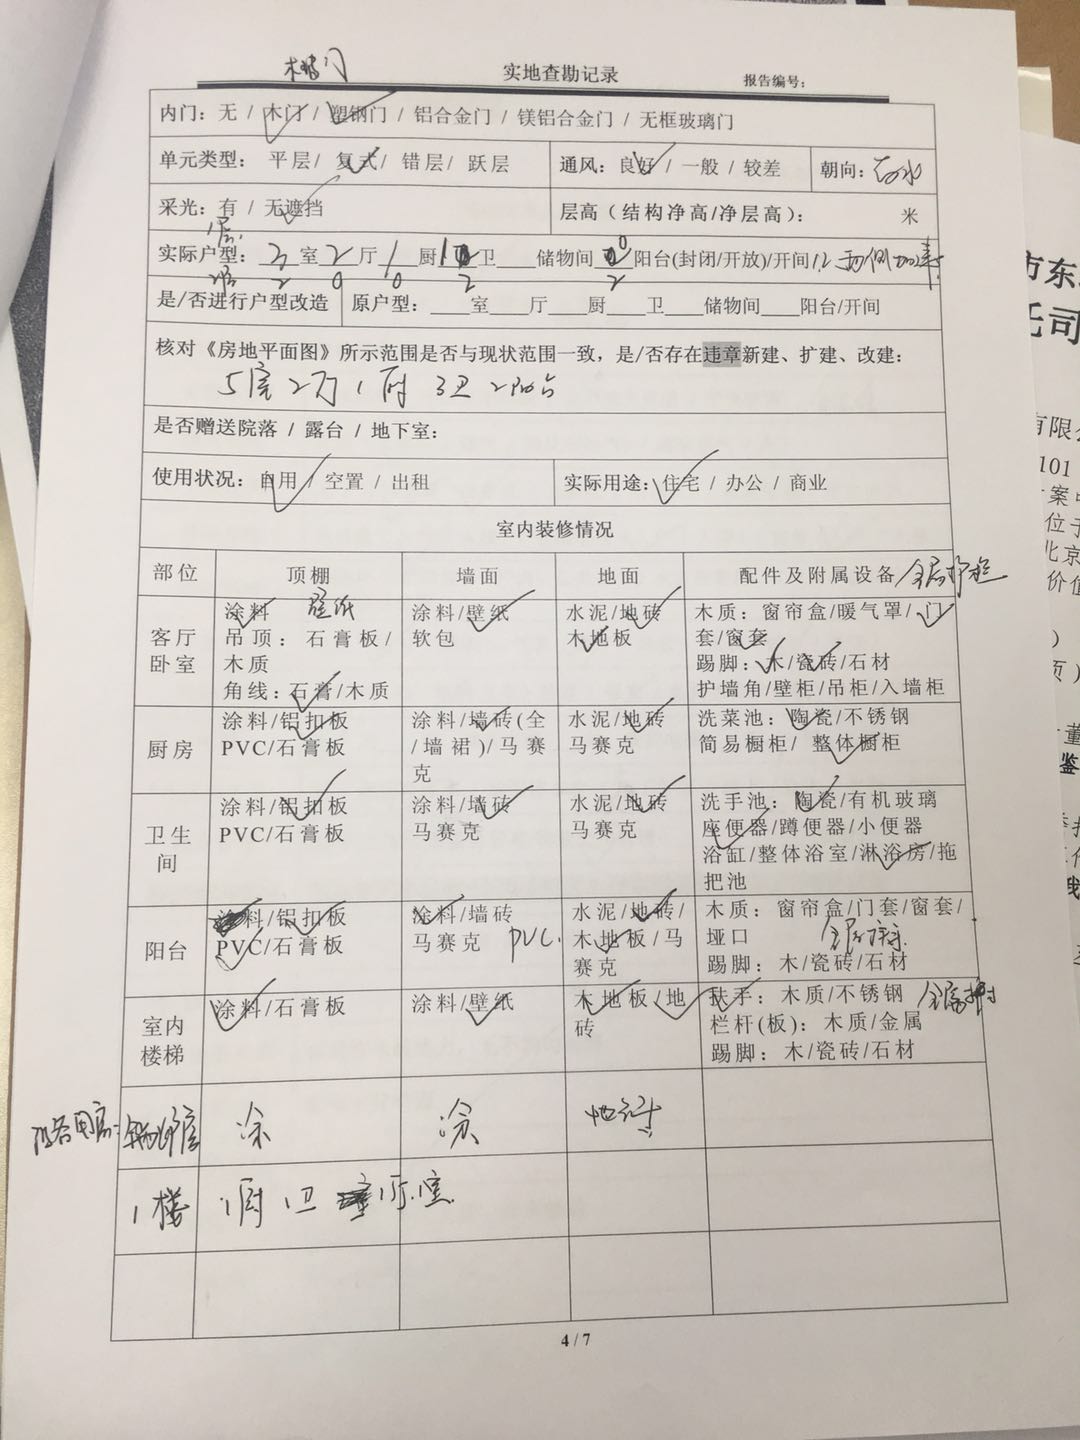 实地查勘记录
报告编号：
内门：无 / 木门 / 塑钢门 / 铝合金门 / 镁铝合金门 / 无框玻璃门
单元类型： 平层 / 复式 / 错层 / 跃层
通风：良好 / 一般 / 较差
朝向：
采光：有 / 无遮挡
层高（结构净高/净层高）： 米
1层
实际户型： 3 室 2 厅 1 厨 1 卫 储物间 0 阳台(封闭/开放)/开间
2 0 0 2 2
是/否进行户型改造
原户型：____室____厅____厨____卫____储物间____阳台/开间
核对《房地平面图》所示范围是否与现状范围一致，是/否存在违章新建、扩建、改建：
5室2厅1厨3卫2阳台
是否赠送院落 / 露台 / 地下室：
使用状况：自用 / 空置 / 出租
实际用途：住宅 / 办公 / 商业
室内装修情况
部位
顶棚
墙面
地面
配件及附属设备
客厅
卧室
涂料 壁纸
吊顶：石膏板/
木质
角线：石膏/木质
涂料/壁纸
软包
水泥/地砖
木地板
木质：窗帘盒/暖气罩/门
套/窗套
踢脚：木/瓷砖/石材
护墙角/壁柜/吊柜/入墙柜
厨房
涂料/铝扣板
PVC/石膏板
涂料/墙砖(全
/墙裙)/马赛
克
水泥/地砖
马赛克
洗菜池：陶瓷/不锈钢
简易橱柜/ 整体橱柜
卫生
间
涂料/铝扣板
PVC/石膏板
涂料/墙砖
马赛克
水泥/地砖
马赛克
洗手池：陶瓷/有机玻璃
座便器/蹲便器/小便器
浴缸/整体浴室/淋浴房/拖
把池
阳台
涂料/铝扣板
PVC/石膏板
涂料/墙砖
马赛克 PVC
水泥/地砖/
木地板/马
赛克
木质：窗帘盒/门套/窗套/
垭口
踢脚：木/瓷砖/石材
室内
楼梯
涂料/石膏板
涂料/壁纸
木地板/地
砖
扶手：木质/不锈钢
栏杆(板)：木质/金属
踢脚：木/瓷砖/石材
涂
涂
地砖
1楼
1厨 1卫 1厅
4 / 7
市东
托司
有限公
101
案中
位于
北京
价值